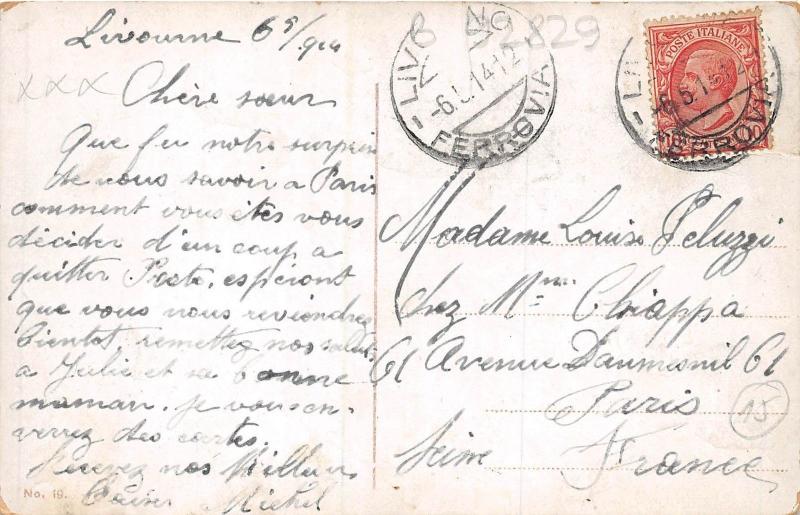 Livourne 6 5/914
52829
LIVORNO
-6.5.14 12
FERROVIA
POSTE ITALIANE
FERROVIA
x x x Chère sœur
Que fu notre surprise
de vous savoir a Paris
comment vous êtes vous
décider d'un coup a
quitter Prato, espéront
que vous nous reviendrez
bientot, remettez nos saluts
a Julie et sa bonne
maman. je vous en-
verrez des cartes.
Recevez nos Meilleurs
Baisers Michel
No. 19.
Madame Louise Peluzzi
chez Mme Chiappa
61 Avenue Daumesnil 61
Paris
15
Seine France